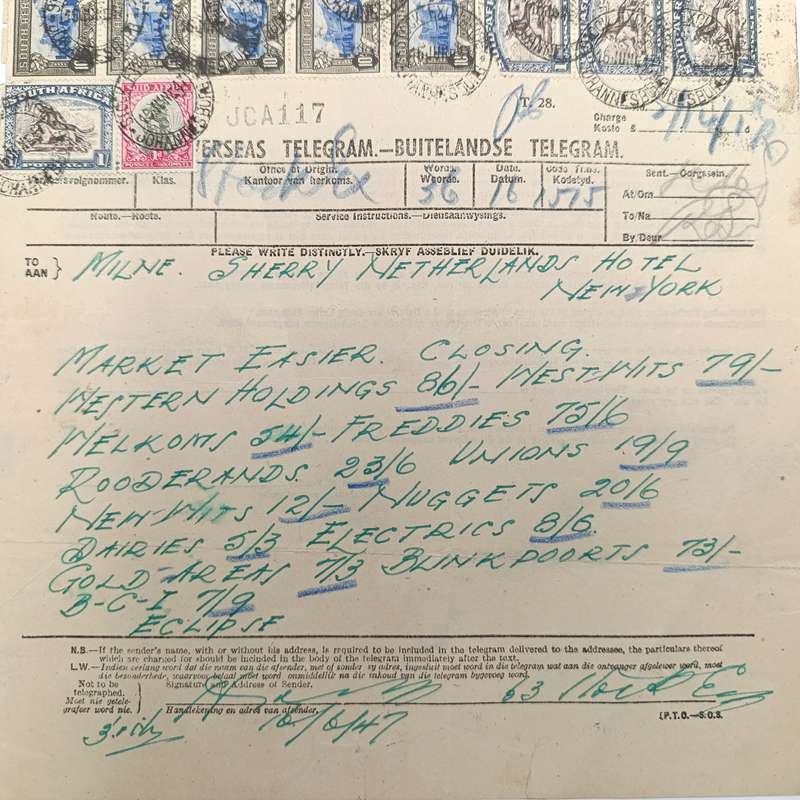 SOUTH AFRICA
SUID-AFRIKA
JCA117
T. 28.
Charge
Koste
OVERSEAS TELEGRAM.—BUITELANDSE TELEGRAM.
Klas.
Office of Origin.
Kantoor van herkoms.
Words.
Woorde.
Date.
Datum.
Code Time.
Kodetyd.
Sent.—Oorgesein.
56
16
1515
At/Om
To/Na
By/Deur
Route.—Roete.
Service Instructions.—Diensaanwysings.
PLEASE WRITE DISTINCTLY.—SKRYF ASSEBLIEF DUIDELIK.
TO
AAN
MILNE. SHERRY NETHERLANDS HOTEL
NEW YORK
MARKET EASIER. CLOSING.
WESTERN HOLDINGS 86/- WEST-WITS 79/-
WELKOMS 54/- FREDDIES 75/6
ROODERANDS. 23/6 UNIONS 19/9
NEW-WITS 12/- NUGGETS 20/6
DAIRIES 5/3 ELECTRICS 8/6
GOLD AREAS 7/3 BLINKPOORTS 73/-
B-C-I 7/9
ECLIPSE
N.B.—If the sender's name, with or without his address, is required to be included in the telegram delivered to the addressee, the particulars thereof
which are charged for should be included in the body of the telegram immediately after the text.
L.W.—Indien verlang word dat die naam van die afsender, met of sonder sy adres, ingesluit moet word in die telegram wat aan die ontvanger afgelewer word, moet
die besonderhede, waarvoor betaal moet word onmiddellik na die inhoud van die telegram bygevoeg word.
Not to be
telegraphed.
Moet nie getele-
grafeer word nie.
Signature and Address of Sender.
Handtekening en adres van afsender.
63
16/6/47
[P.T.O.—S.O.S.